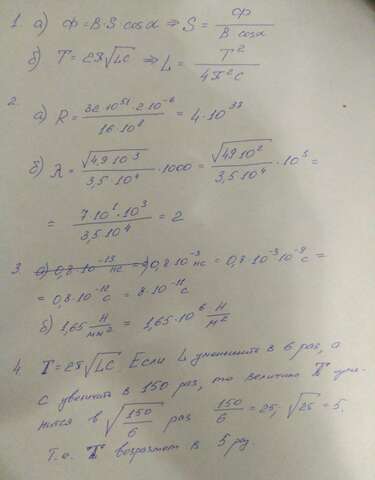 1. а) Ф = B·S cosα ⇒ S = Ф / B cosα
б) T = 2π√LC ⇒ L = T² / 4π²C
2. а) R = 32·10⁵¹·2·10⁻⁶ / 16·10⁸ = 4·10³³
б) R = √49·10³ / 3,5·10⁴ · 1000 = √49·10² / 3,5·10⁴ · 10³ =
= 7·10¹·10³ / 3,5·10⁴ = 2
3. а) 0,8·10⁻³ нс = 0,8·10⁻³·10⁻⁹ с =
= 0,8·10⁻¹² с = 8·10⁻¹¹ с
б) 1,65 Н/мм² = 1,65·10⁶ Н/м²
4. T = 2π√LC. Если L уменьшить в 6 раз, а
C увеличить в 150 раз, то величина T
нится в √150/6 раз 150/6 = 25, √25 = 5.
Т.о. T возрастет в 5 раз.